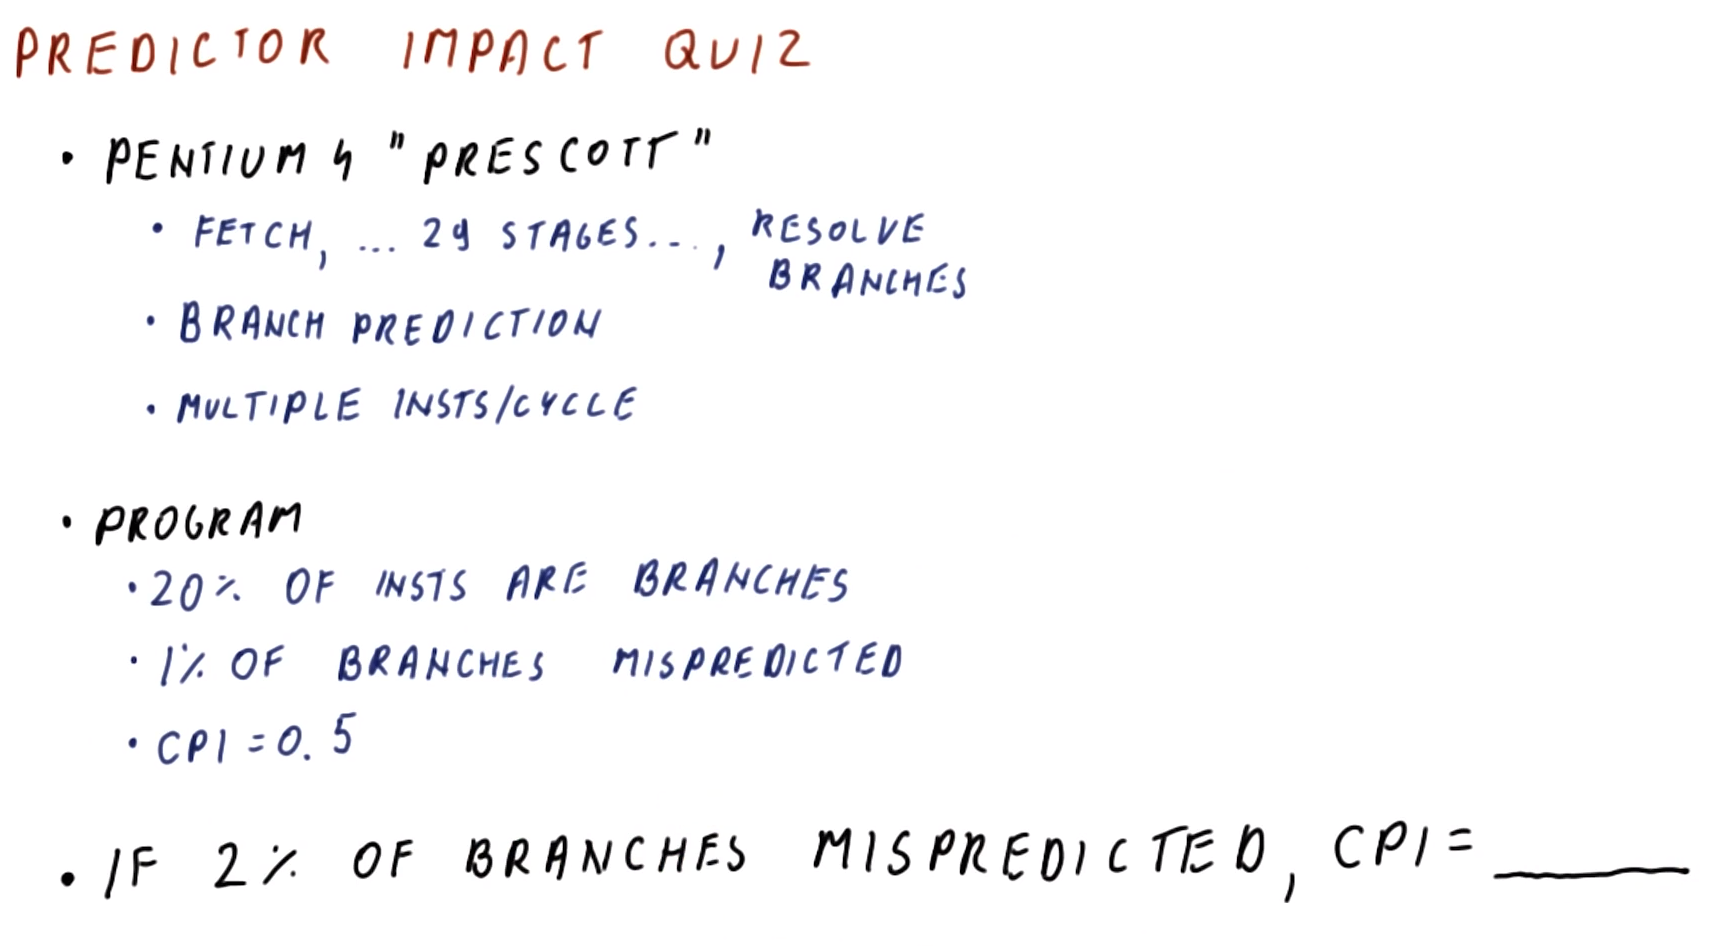 PREDICTOR IMPACT QUIZ
• PENTIUM 4 "PRESCOTT"
• FETCH, ... 29 STAGES..., RESOLVE
BRANCHES
• BRANCH PREDICTION
• MULTIPLE INSTS/CYCLE
• PROGRAM
• 20% OF INSTS ARE BRANCHES
• 1% OF BRANCHES MISPREDICTED
• CPI = 0.5
• IF 2% OF BRANCHES MISPREDICTED, CPI = ______